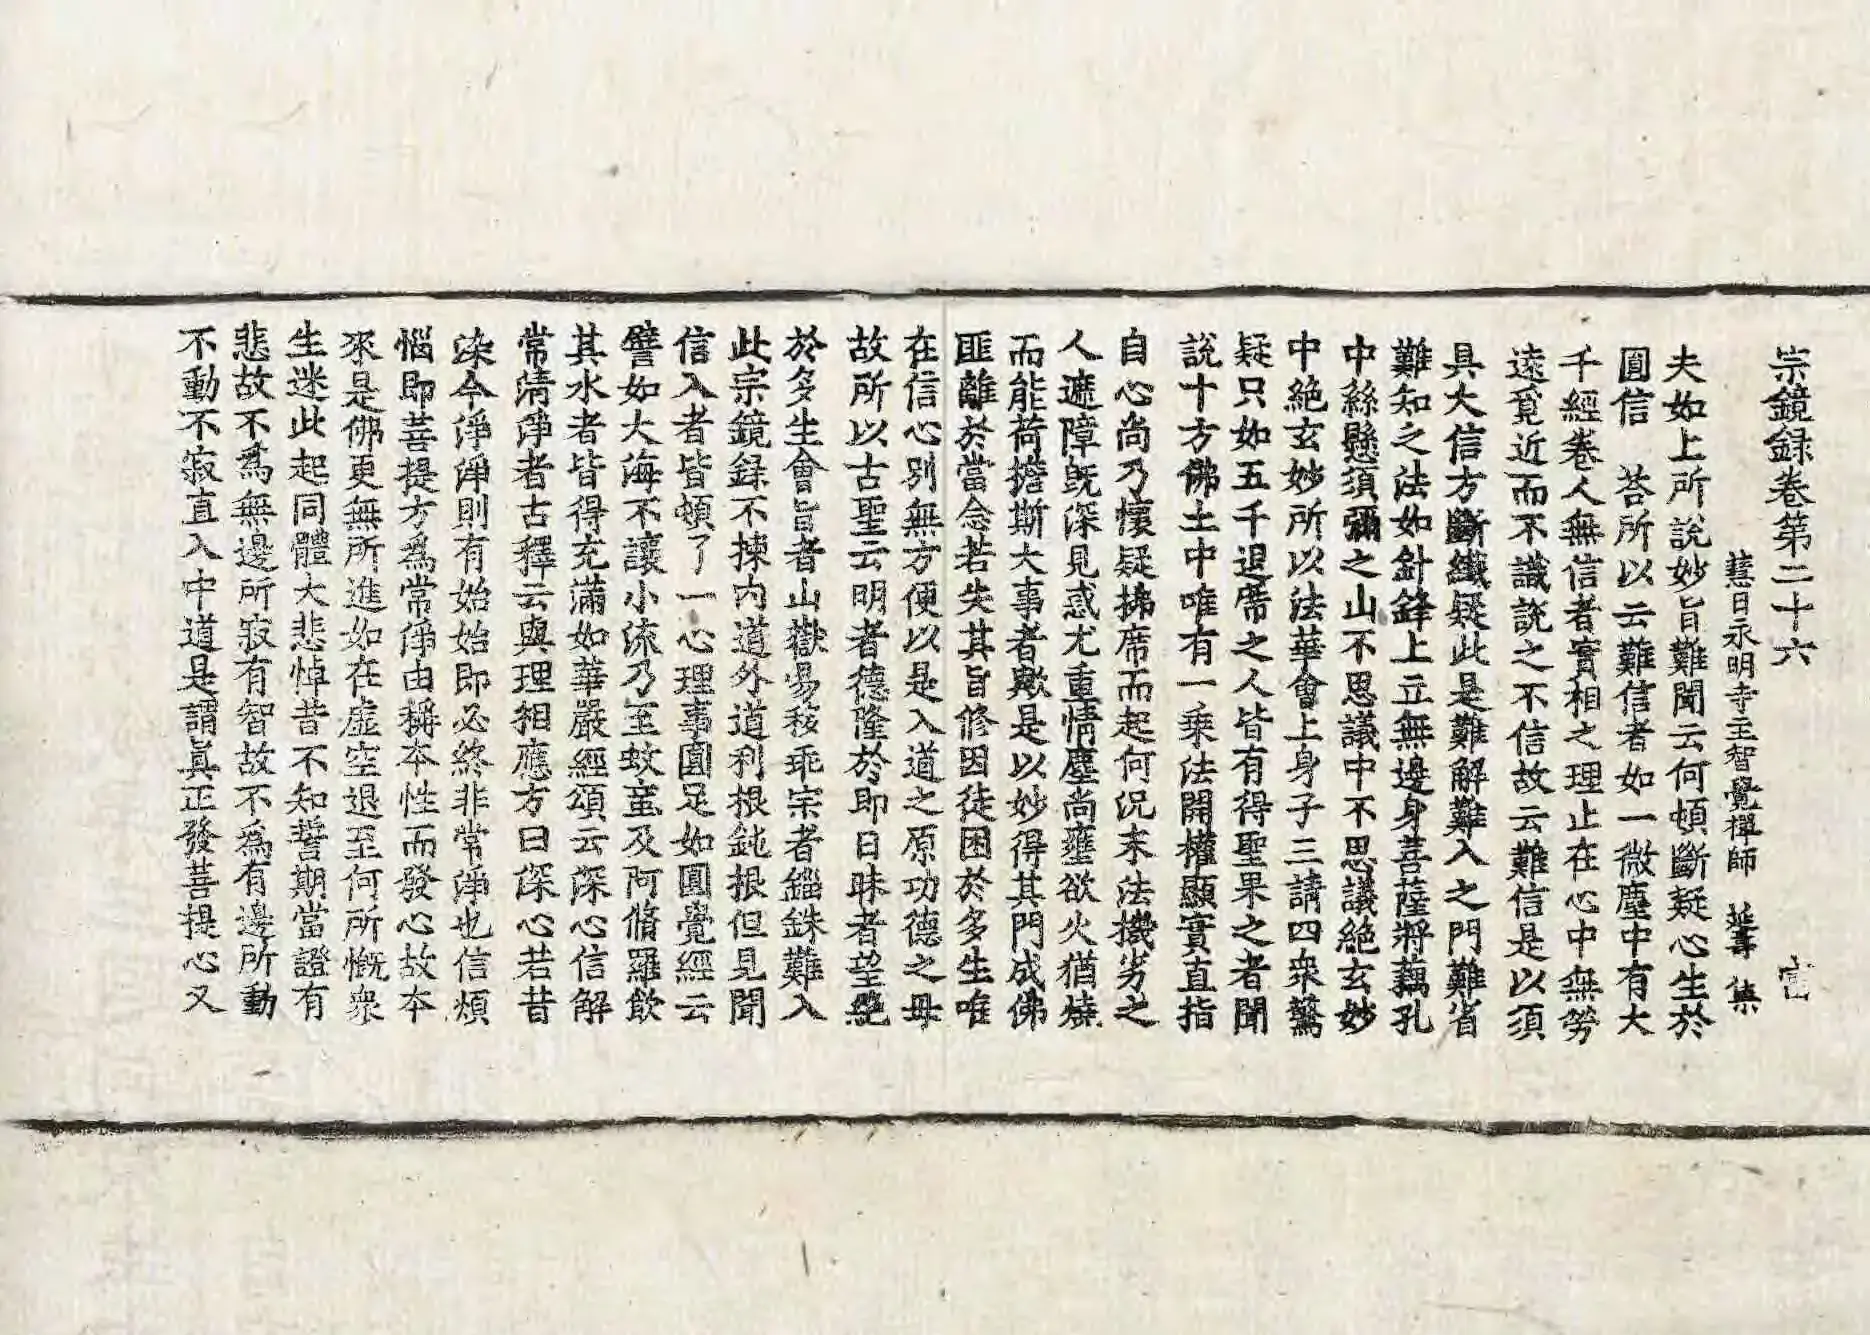 宗鏡録卷第二十六
慧日永明寺主智覺禪師 延壽 集
夫如上所說妙旨難聞云何頓斷疑心生於
圓信 荅所以云難信者如一微塵中有大
千經卷人無信者實相之理止在心中無勞
遠覓近而不識說之不信故云難信是以須
具大信方斷纖疑此是難解難入之門難省
難知之法如針鋒上立無邊身菩薩將藕孔
中絲懸須彌之山不思議中不思議絶玄妙
中絶玄妙所以法華會上身子三請四衆驚
疑只如五千退席之人皆有得聖果之者聞
說十方佛土中唯有一乘法開權顯實直指
自心尚乃懷疑拂席而起何況末法機劣之
人遮障既深見惑尤重情塵尚壅欲火猶燒
而能荷擔斯大事者歟是以妙得其門成佛
匪離於當念若失其旨修因徒困於多生唯
在信心別無方便以是入道之原功德之母
故所以古聖云明者德隆於即日昧者望絶
於多生會旨者山嶽易移乖宗者錙銖難入
此宗鏡録不揀內道外道利根鈍根但見聞
信入者皆頓了一心理事圓足如圓覺經云
譬如大海不讓小流乃至蚊蝱及阿脩羅飲
其水者皆得充滿如華嚴經頌云深心信解
常清淨者古釋云與理相應方曰深心若昔
染今淨淨則有始始即必終非常淨也信煩
惱即菩提方爲常淨由稱本性而發心故本
來是佛更無所進如在虛空退至何所慨衆
生迷此起同體大悲悼昔不知誓期當證有
悲故不爲無邊所寂有智故不爲有邊所動
不動不寂直入中道是謂眞正發菩提心又